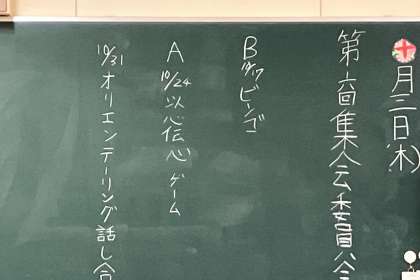 十月三日(木)
第六回集会委員会
B ビンゴ
A 10/24 以心伝心ゲーム
10/31 オリエンテーリング話し合